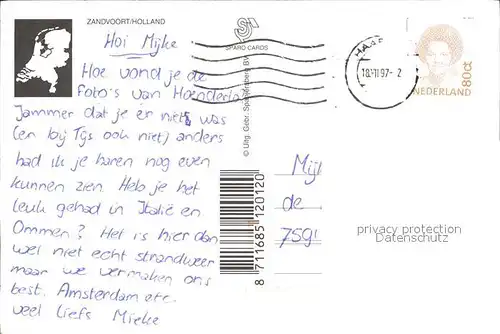 ZANDVOORT/HOLLAND
Hoi Mijke
SPARO CARDS
Hoe vond je de
foto's van Hoenderlo
Jammer dat je er niet was
(en bij Tijs ook niet) anders
had ik je haren nog even
kunnen zien. Heb je het
leuk gehad in Italië en
Ommen? Het is hier dan
wel niet echt strandweer
maar we vermaken ons
best. Amsterdam etc.
veel liefs Mieke
© Uitg. Gebr. BV
8 711685 120120
18.VII.97-2
80ct
NEDERLAND
Mij
de
759
privacy protection
Datenschutz